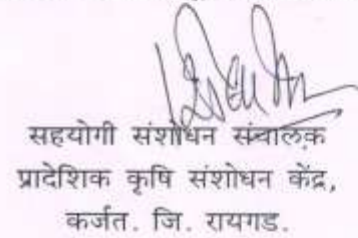 सहयोगी संशोधन संचालक
प्रादेशिक कृषि संशोधन केंद्र,
कर्जत. जि. रायगड.